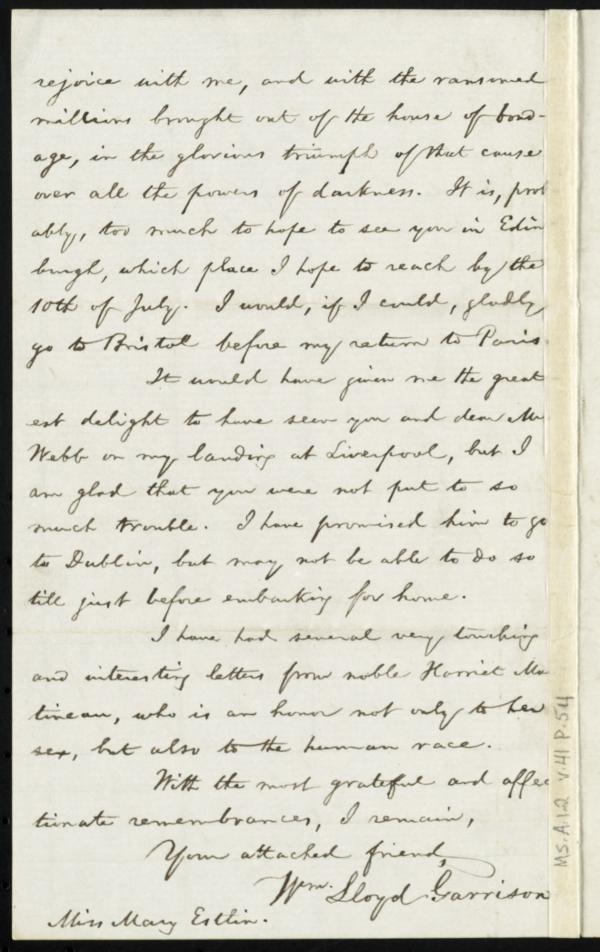 rejoice with me, and with the ransomed
millions brought out of the house of bond-
age, in the glorious triumph of that cause
over all the powers of darkness. It is, prob
ably, too much to hope to see you in Edin
burgh, which place I hope to reach by the
10th of July. I would, if I could, gladly
go to Bristol before my return to Paris.
It would have given me the great
est delight to have seen you and dear Mr
Webb on my landing at Liverpool, but I
am glad that you were not put to so
much trouble. I have promised him to go
to Dublin, but may not be able to do so
till just before embarking for home.
I have had several very touching
and interesting letters from noble Harriet Mar
tineau, who is an honor not only to her
sex, but also to the human race.
With the most grateful and affec
tionate remembrances, I remain,
Your attached friend,
Wm. Lloyd Garrison
Miss Mary Estlin.
MS.A.1.2 v.41 P.54